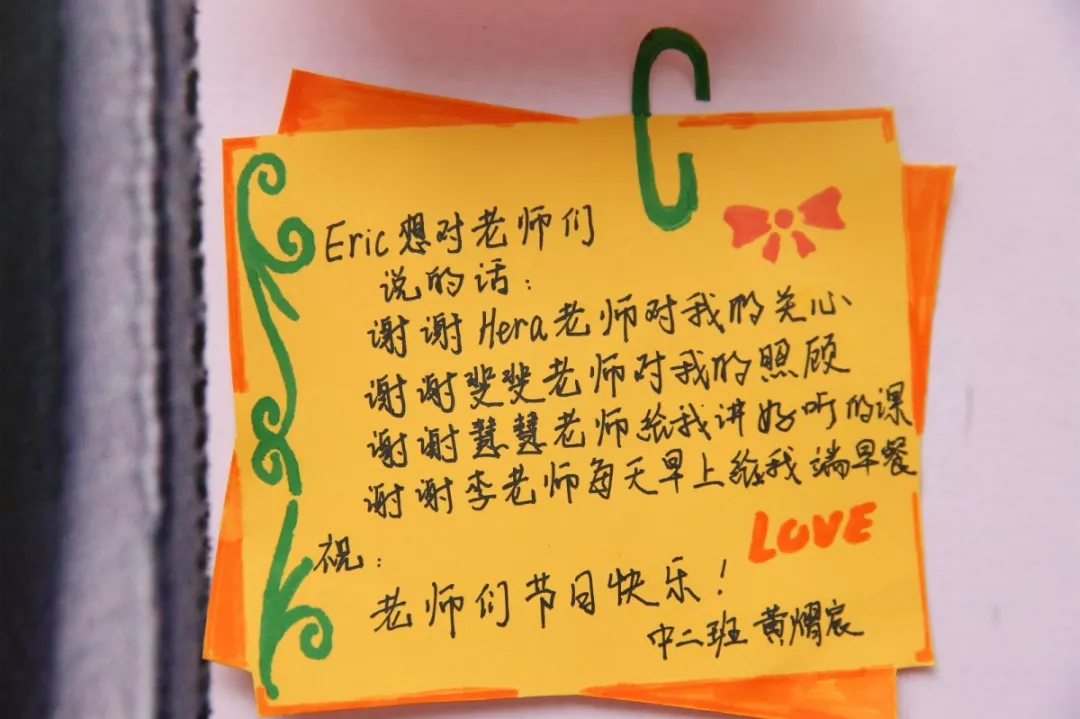 Eric想对老师们
说的话：
谢谢Hera老师对我的关心
谢谢斐斐老师对我的照顾
谢谢慧慧老师给我讲好听的课
谢谢李老师每天早上给我端早餐
LOVE
祝：
老师们节日快乐！
中二班 黄熠宸